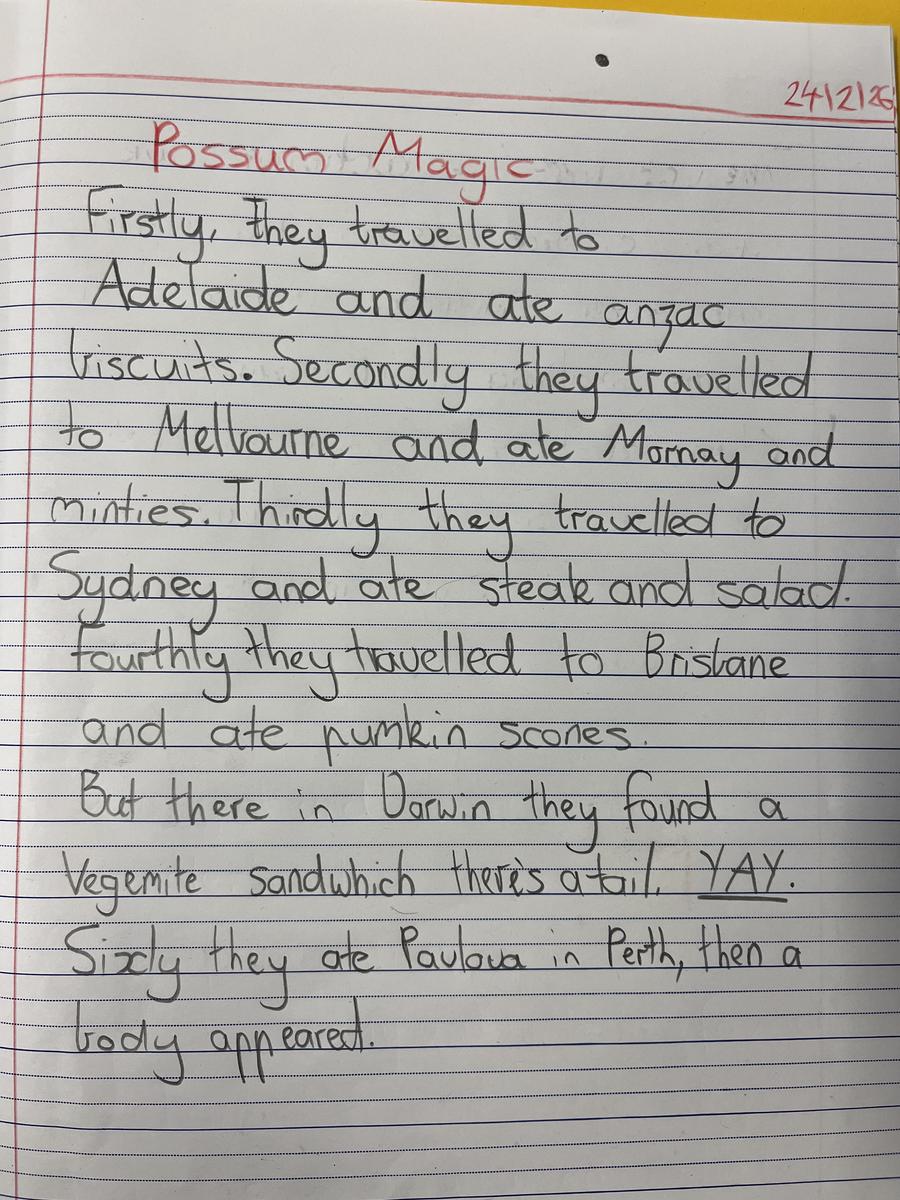 24/2/26
Possum Magic
Firstly, they travelled to
Adelaide and ate anzac
biscuits. Secondly they travelled
to Melbourne and ate Mornay and
minties. Thirdly they travelled to
Sydney and ate steak and salad.
Fourthly they travelled to Brisbane
and ate pumkin scones.
But there in Darwin they found a
Vegemite sandwhich there's a tail. YAY.
Sixly they ate Pavlova in Perth, then a
body appeared.